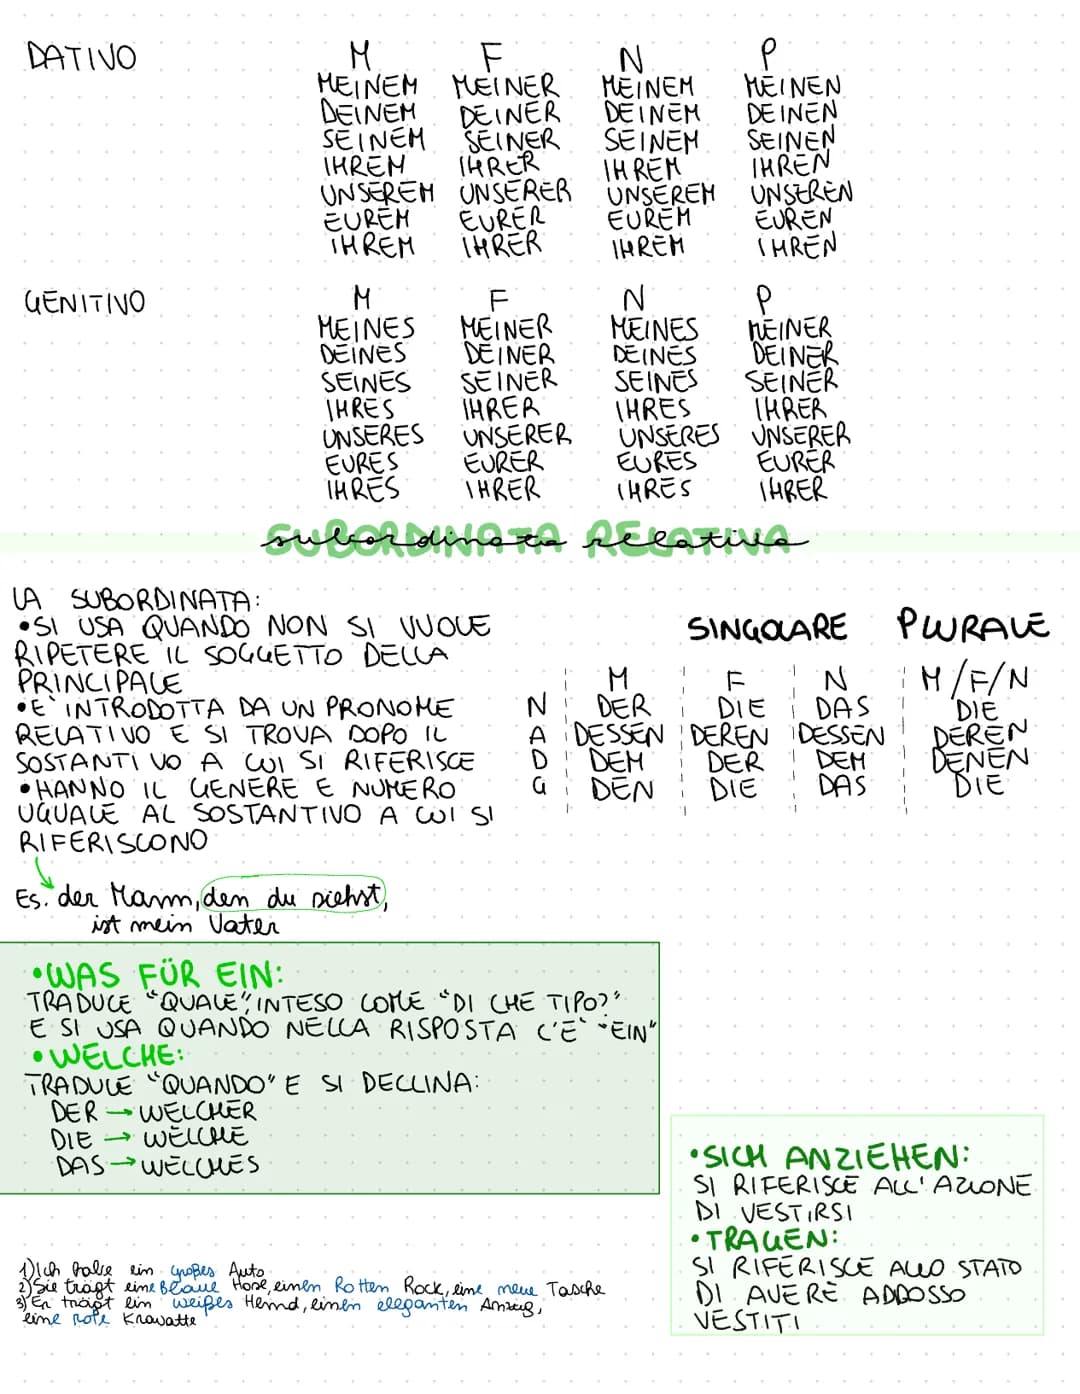 DATIVO M F N P
MEINEM MEINER MEINEM MEINEN
DEINEM DEINER DEINEM DEINEN
SEINEM SEINER SEINEM SEINEN
IHREM IHRER IHREM IHREN
UNSEREM UNSERER UNSEREM UNSEREN
EUREM EURER EUREM EUREN
IHREM IHRER IHREM IHREN
GENITIVO M F N P
MEINES MEINER MEINES MEINER
DEINES DEINER DEINES DEINER
SEINES SEINER SEINES SEINER
IHRES IHRER IHRES IHRER
UNSERES UNSERER UNSERES UNSERER
EURES EURER EURES EURER
IHRES IHRER IHRES IHRER
SUBORDINATA RELATIVA
LA SUBORDINATA:
•SI USA QUANDO NON SI VUOLE
RIPETERE IL SOGGETTO DELLA
PRINCIPALE
•E' INTRODOTTA DA UN PRONOME
RELATIVO E SI TROVA DOPO IL
SOSTANTIVO A CUI SI RIFERISCE
•HANNO IL GENERE E NUMERO
UGUALE AL SOSTANTIVO A CUI SI
RIFERISCONO
SINGOLARE PLURALE
M F N M/F/N
N DER DIE DAS DIE
A DESSEN DEREN DESSEN DEREN
D DEM DER DEM DENEN
G DEN DIE DAS DIE
Es. der Mann, den du siehst,
ist mein Vater
•WAS FÜR EIN:
TRADUCE "QUALE", INTESO COME "DI CHE TIPO?"
E SI USA QUANDO NELLA RISPOSTA C'E' "EIN"
•WELCHE:
TRADUCE "QUANDO" E SI DECLINA:
DER → WELCHER
DIE → WELCHE
DAS → WELCHES
•SICH ANZIEHEN:
SI RIFERISCE ALL'AZIONE
DI VESTIRSI
•TRAGEN:
SI RIFERISCE ALLO STATO
DI AVERE ADDOSSO
VESTITI
1) Ich habe ein großes Auto
2) Sie trägt eine Blaue Hose, einen Rotten Rock, eine neue Tasche
3) Er trägt ein weißes Hemd, einen eleganten Anzug,
eine rote Krawatte